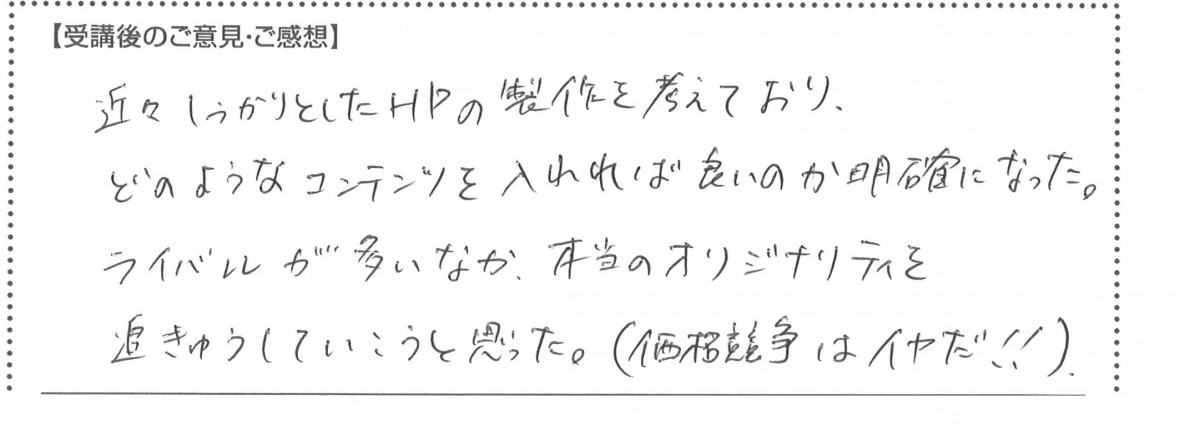 【受講後のご意見･ご感想】
近々しっかりとしたHPの製作を考えており、
どのようなコンテンツを入れれば良いのか明確になった。
ライバルが多いなか、本当のオリジナリティを
追きゅうしていこうと思った。(価格競争はイヤだ!!).